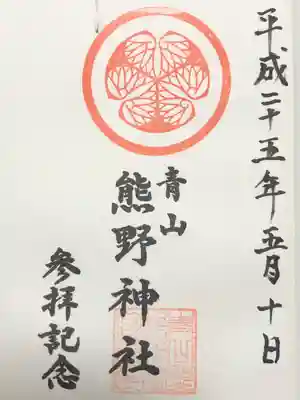 平成二十五年五月十日
青山
熊野神社
参拝記念